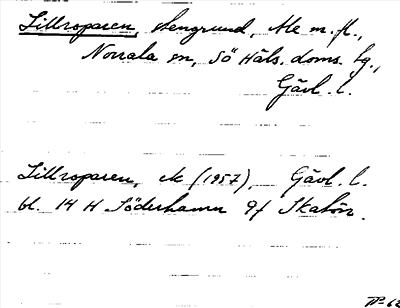 Lillroparen, stengrund, Ale m. fl.,
Norrala sn, Sö Häls. doms. sg.,
Gävl. l.
Lillroparen, ek (1957), Gävl. l.
bl. 14 H Söderhamn 9f Skatön.